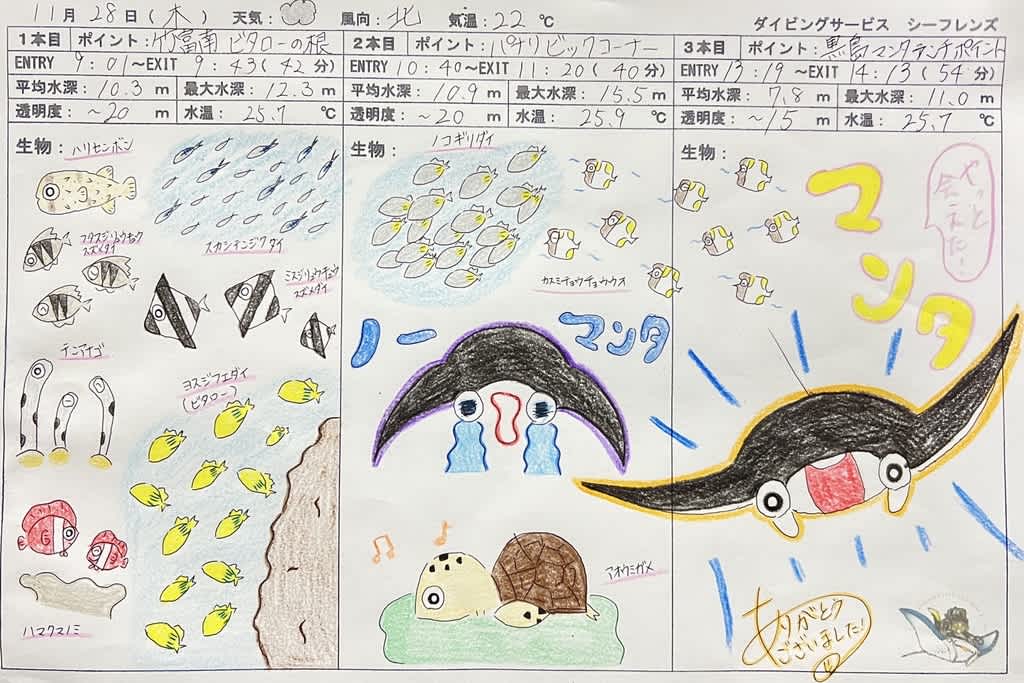 11月28日(木) 天気: 風向:北 気温:22℃
ダイビングサービス シーフレンズ
1本目 ポイント:竹富南 ビタローの根
ENTRY 9:01〜EXIT 9:43(42分)
平均水深:10.3m 最大水深:12.3m
透明度:〜20m 水温:25.7℃
生物:
ハリセンボン
スカシテンジクダイ
フタスジリュウキュウ
スズメダイ
ミスジリュウキュウ
スズメダイ
チンアナゴ
ヨスジフエダイ
(ビタロー)
ハマクマノミ
2本目 ポイント:パナリビックコーナー
ENTRY 10:40〜EXIT 11:20(40分)
平均水深:10.9m 最大水深:15.5m
透明度:〜20m 水温:25.9℃
生物:
ノコギリダイ
カスミチョウチョウウオ
ノーマンタ
アオウミガメ
3本目 ポイント:黒島マンタランチポイント
ENTRY 13:19〜EXIT 14:13(54分)
平均水深:7.8m 最大水深:11.0m
透明度:〜15m 水温:25.7℃
生物:
マンタ
やっと
会えた!
ありがとう
ございました!